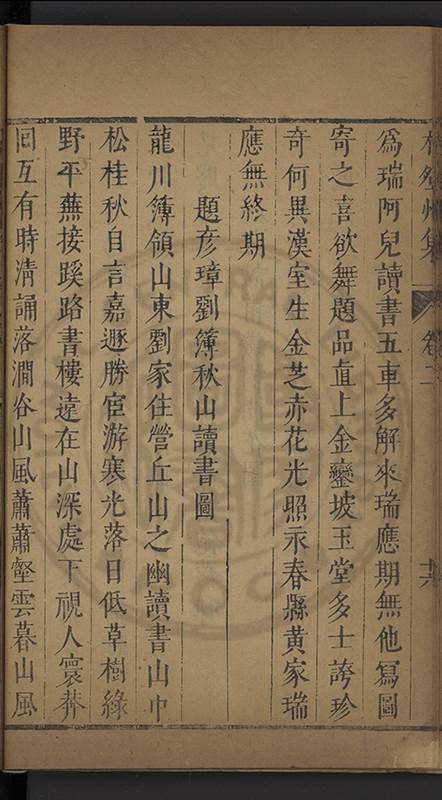 集
卷二
為瑞阿兒讀書五車多解來瑞應期無他寫圖
寄之喜欲舞題品直上金鑾坡玉堂多士誇珍
奇何異漢室生金芝赤花光照永春縣黃家瑞
應無終期
題彥璋劉簿秋山讀書圖
龍川簿領山東劉家住營丘山之幽讀書山中
松桂秋自言嘉遯勝宦游寒光落日低草樹綠
野平蕪接蹊路書樓遠在山深處下視人寰莽
回互有時清誦落澗谷山風蕭蕭壑雲暮山風